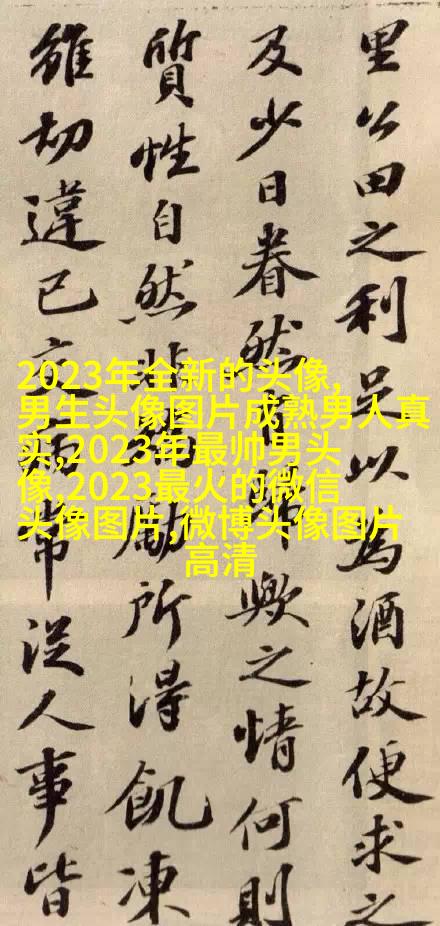 里公田之利足以為酒故便求之
及少日眷然有歸歟之情何則
質性自然非矯勵所得飢凍
雖切違己交病常從人事皆
2023年全新的头像,
男生头像图片成熟男人真
实,2023年最帅男头
像,2023最火的微信
头像图片,微博头像图片
高清